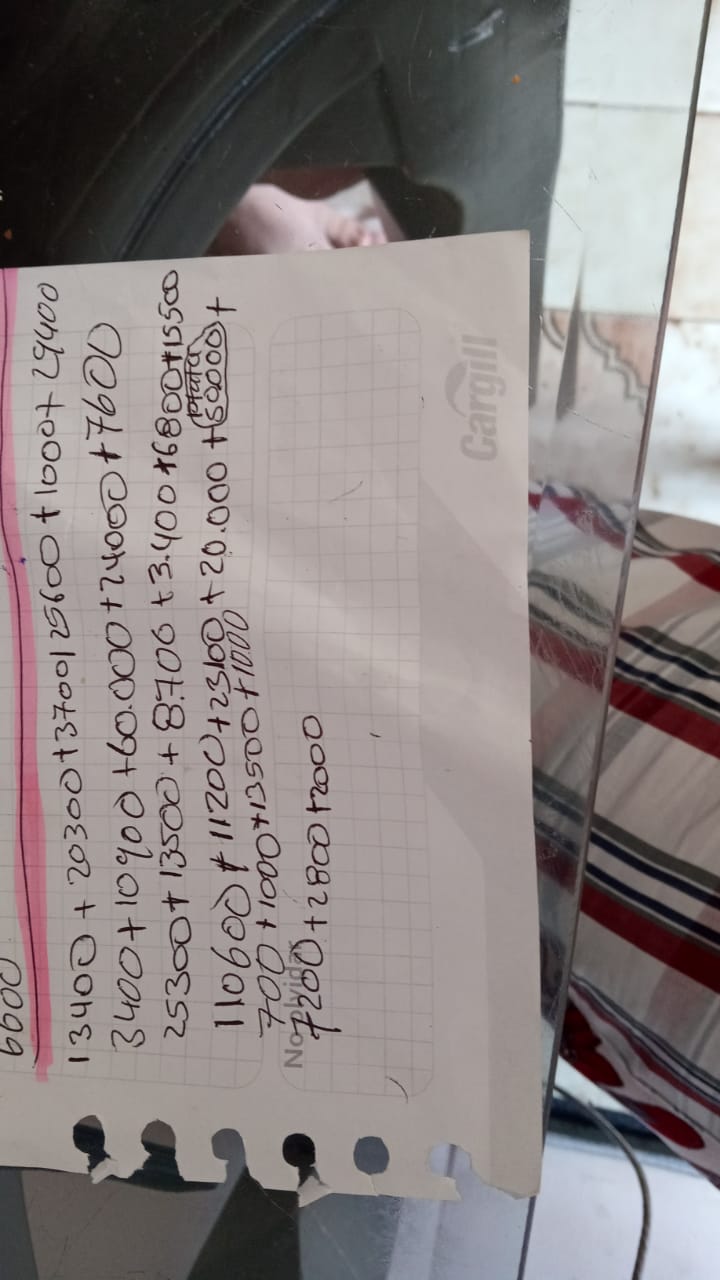 6600
13400 + 20300 + 3700 | 25600 + 1000 + 29400
3400 + 10900 + 60.000 + 24000 + 7600
25300 + 13500 + 8.700 + 3.400 + 6800 + 15500
110600 + 11200 + 23100 + 20.000 + 50000 +
700 + 1000 + 13500 + 1000
No olvidar
7200 + 2800 + 2000
Cargill